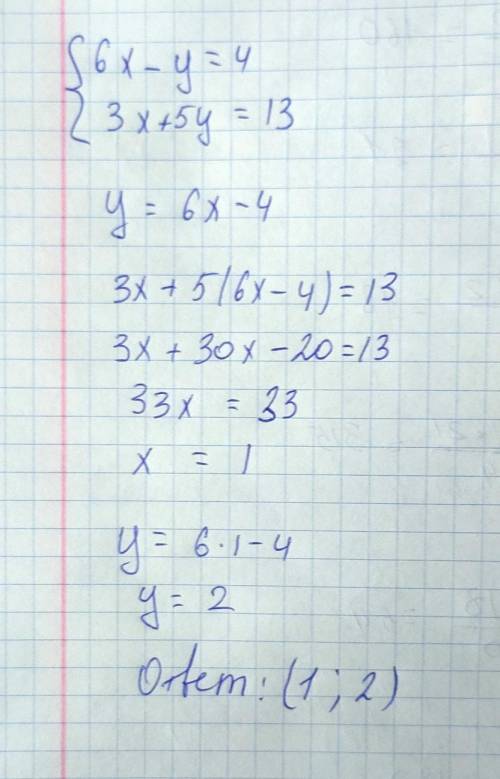 6x - y = 4
3x + 5y = 13
y = 6x - 4
3x + 5(6x - 4) = 13
3x + 30x - 20 = 13
33x = 33
x = 1
y = 6 · 1 - 4
y = 2
Ответ: (1; 2)